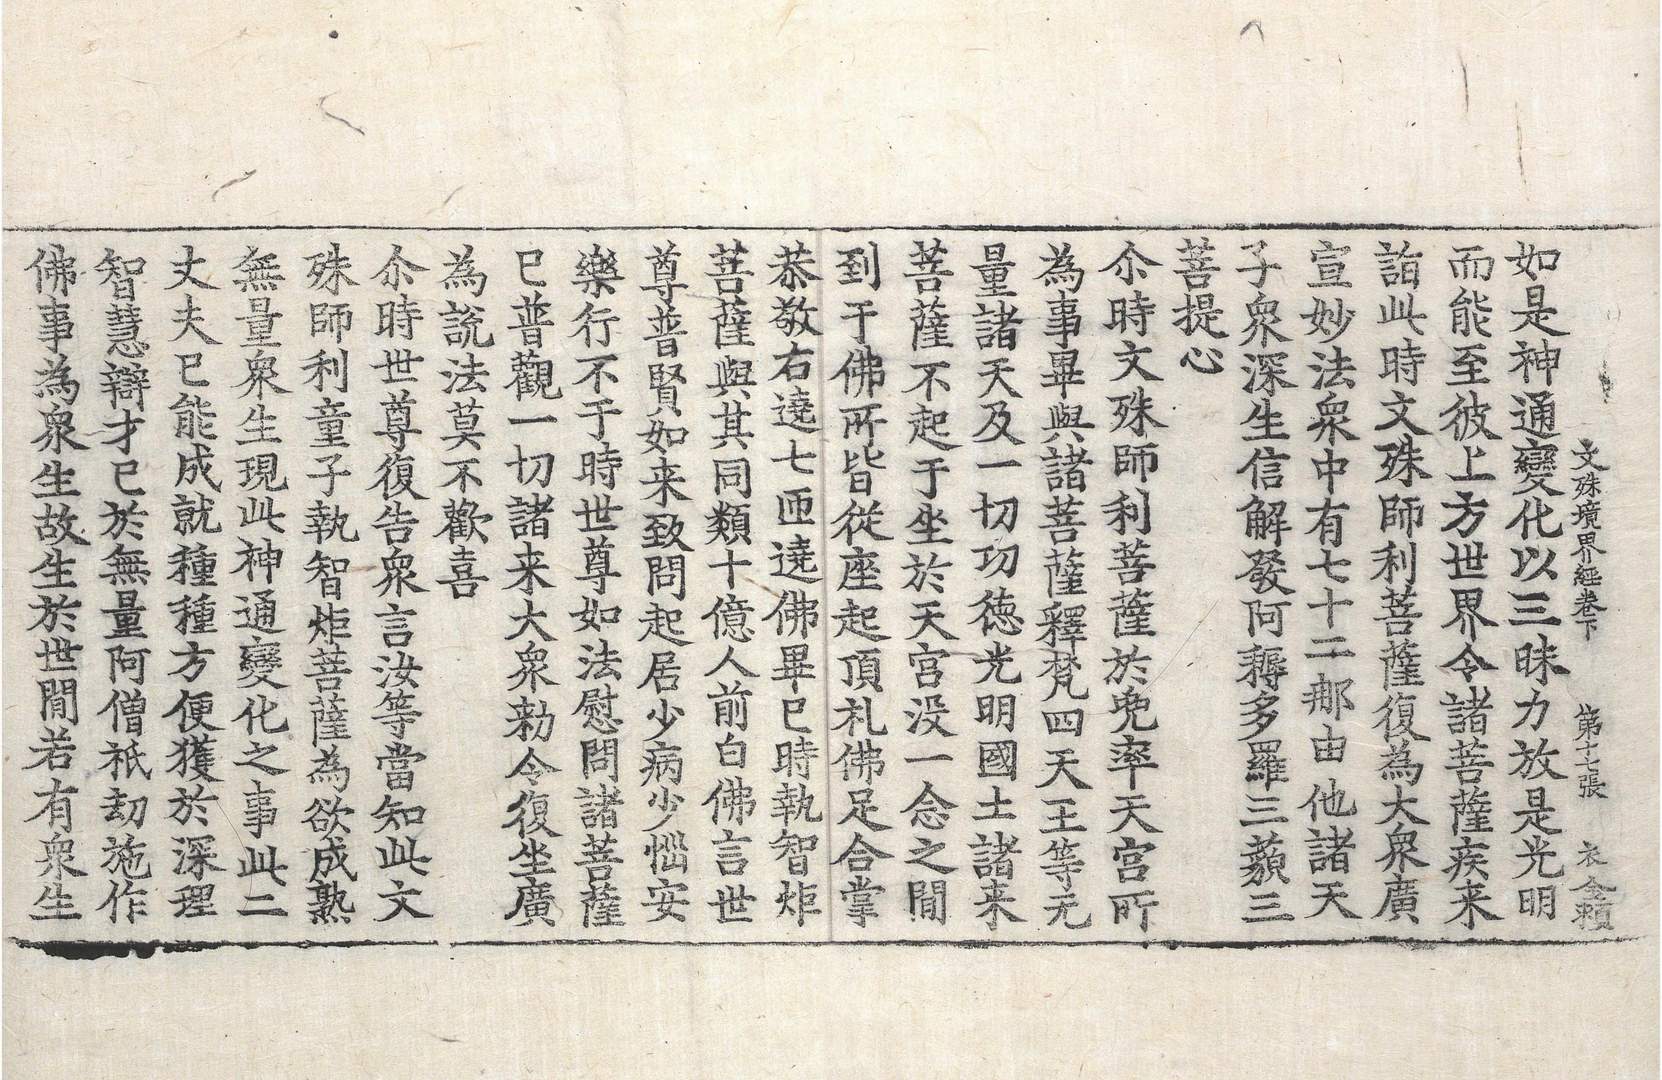 文殊境界經卷下　第十七張　衣　金賴
如是神通變化以三昧力放是光明
而能至彼上方世界令諸菩薩疾来
詣此時文殊師利菩薩復為大衆廣
宣妙法衆中有七十二那由他諸天
子衆深生信解發阿耨多羅三藐三
菩提心
尒時文殊師利菩薩於兜率天宮所
為事畢與諸菩薩釋梵四天王等无
量諸天及一切功德光明國土諸来
菩薩不起于坐於天宮没一念之間
到于佛所皆從座起頂礼佛足合掌
恭敬右遶七匝遶佛畢已時執智炬
菩薩與其同類十億人前白佛言世
尊普賢如来致問起居少病少惱安
樂行不于時世尊如法慰問諸菩薩
已普觀一切諸来大衆勑令復坐廣
為說法莫不歡喜
尒時世尊復告衆言汝等當知此文
殊師利童子執智炬菩薩為欲成熟
無量衆生現此神通變化之事此二
丈夫已能成就種種方便獲於深理
智慧辯才已於無量阿僧祇劫施作
佛事為衆生故生於世間若有衆生